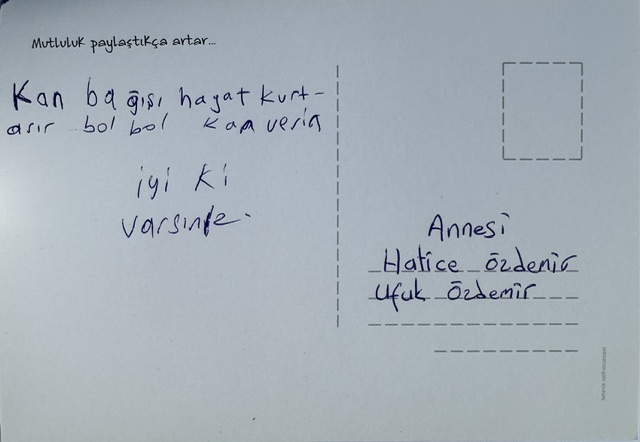 Mutluluk paylaştıkça artar...
Kan bağışı hayat kurt-
arır bol bol kan verin
iyi ki
Annesi
Hatice Özdemir
Ufuk Özdemir